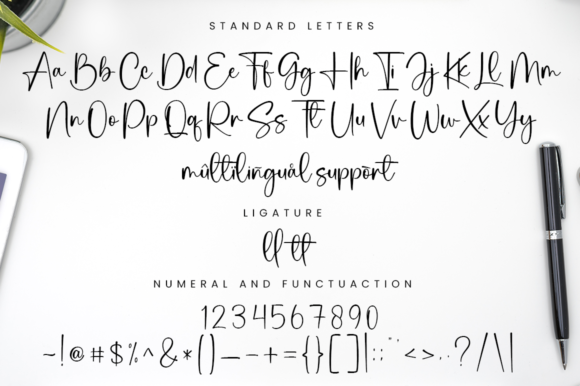 STANDARD LETTERS
Aa Bb Cc Dd Ee Ff Gg Hh Ii Jj Kk Ll Mm
Nn Oo Pp Qq Rr Ss Tt Uu Vv Ww Xx Yy
multilingual support
LIGATURE
ll tt
NUMERAL AND FUNCTUACTION
1234567890
~!@#$%^&*()—-+={}[]|:;"'<>,.?/\|